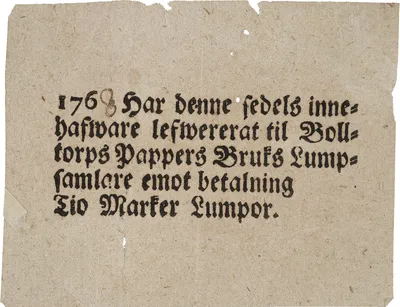 1768 Har denne sedels inne-
hafware lefwererat til Boll-
torps Pappers Bruks Lump-
samlare emot betalning
Tio Marker Lumpor.